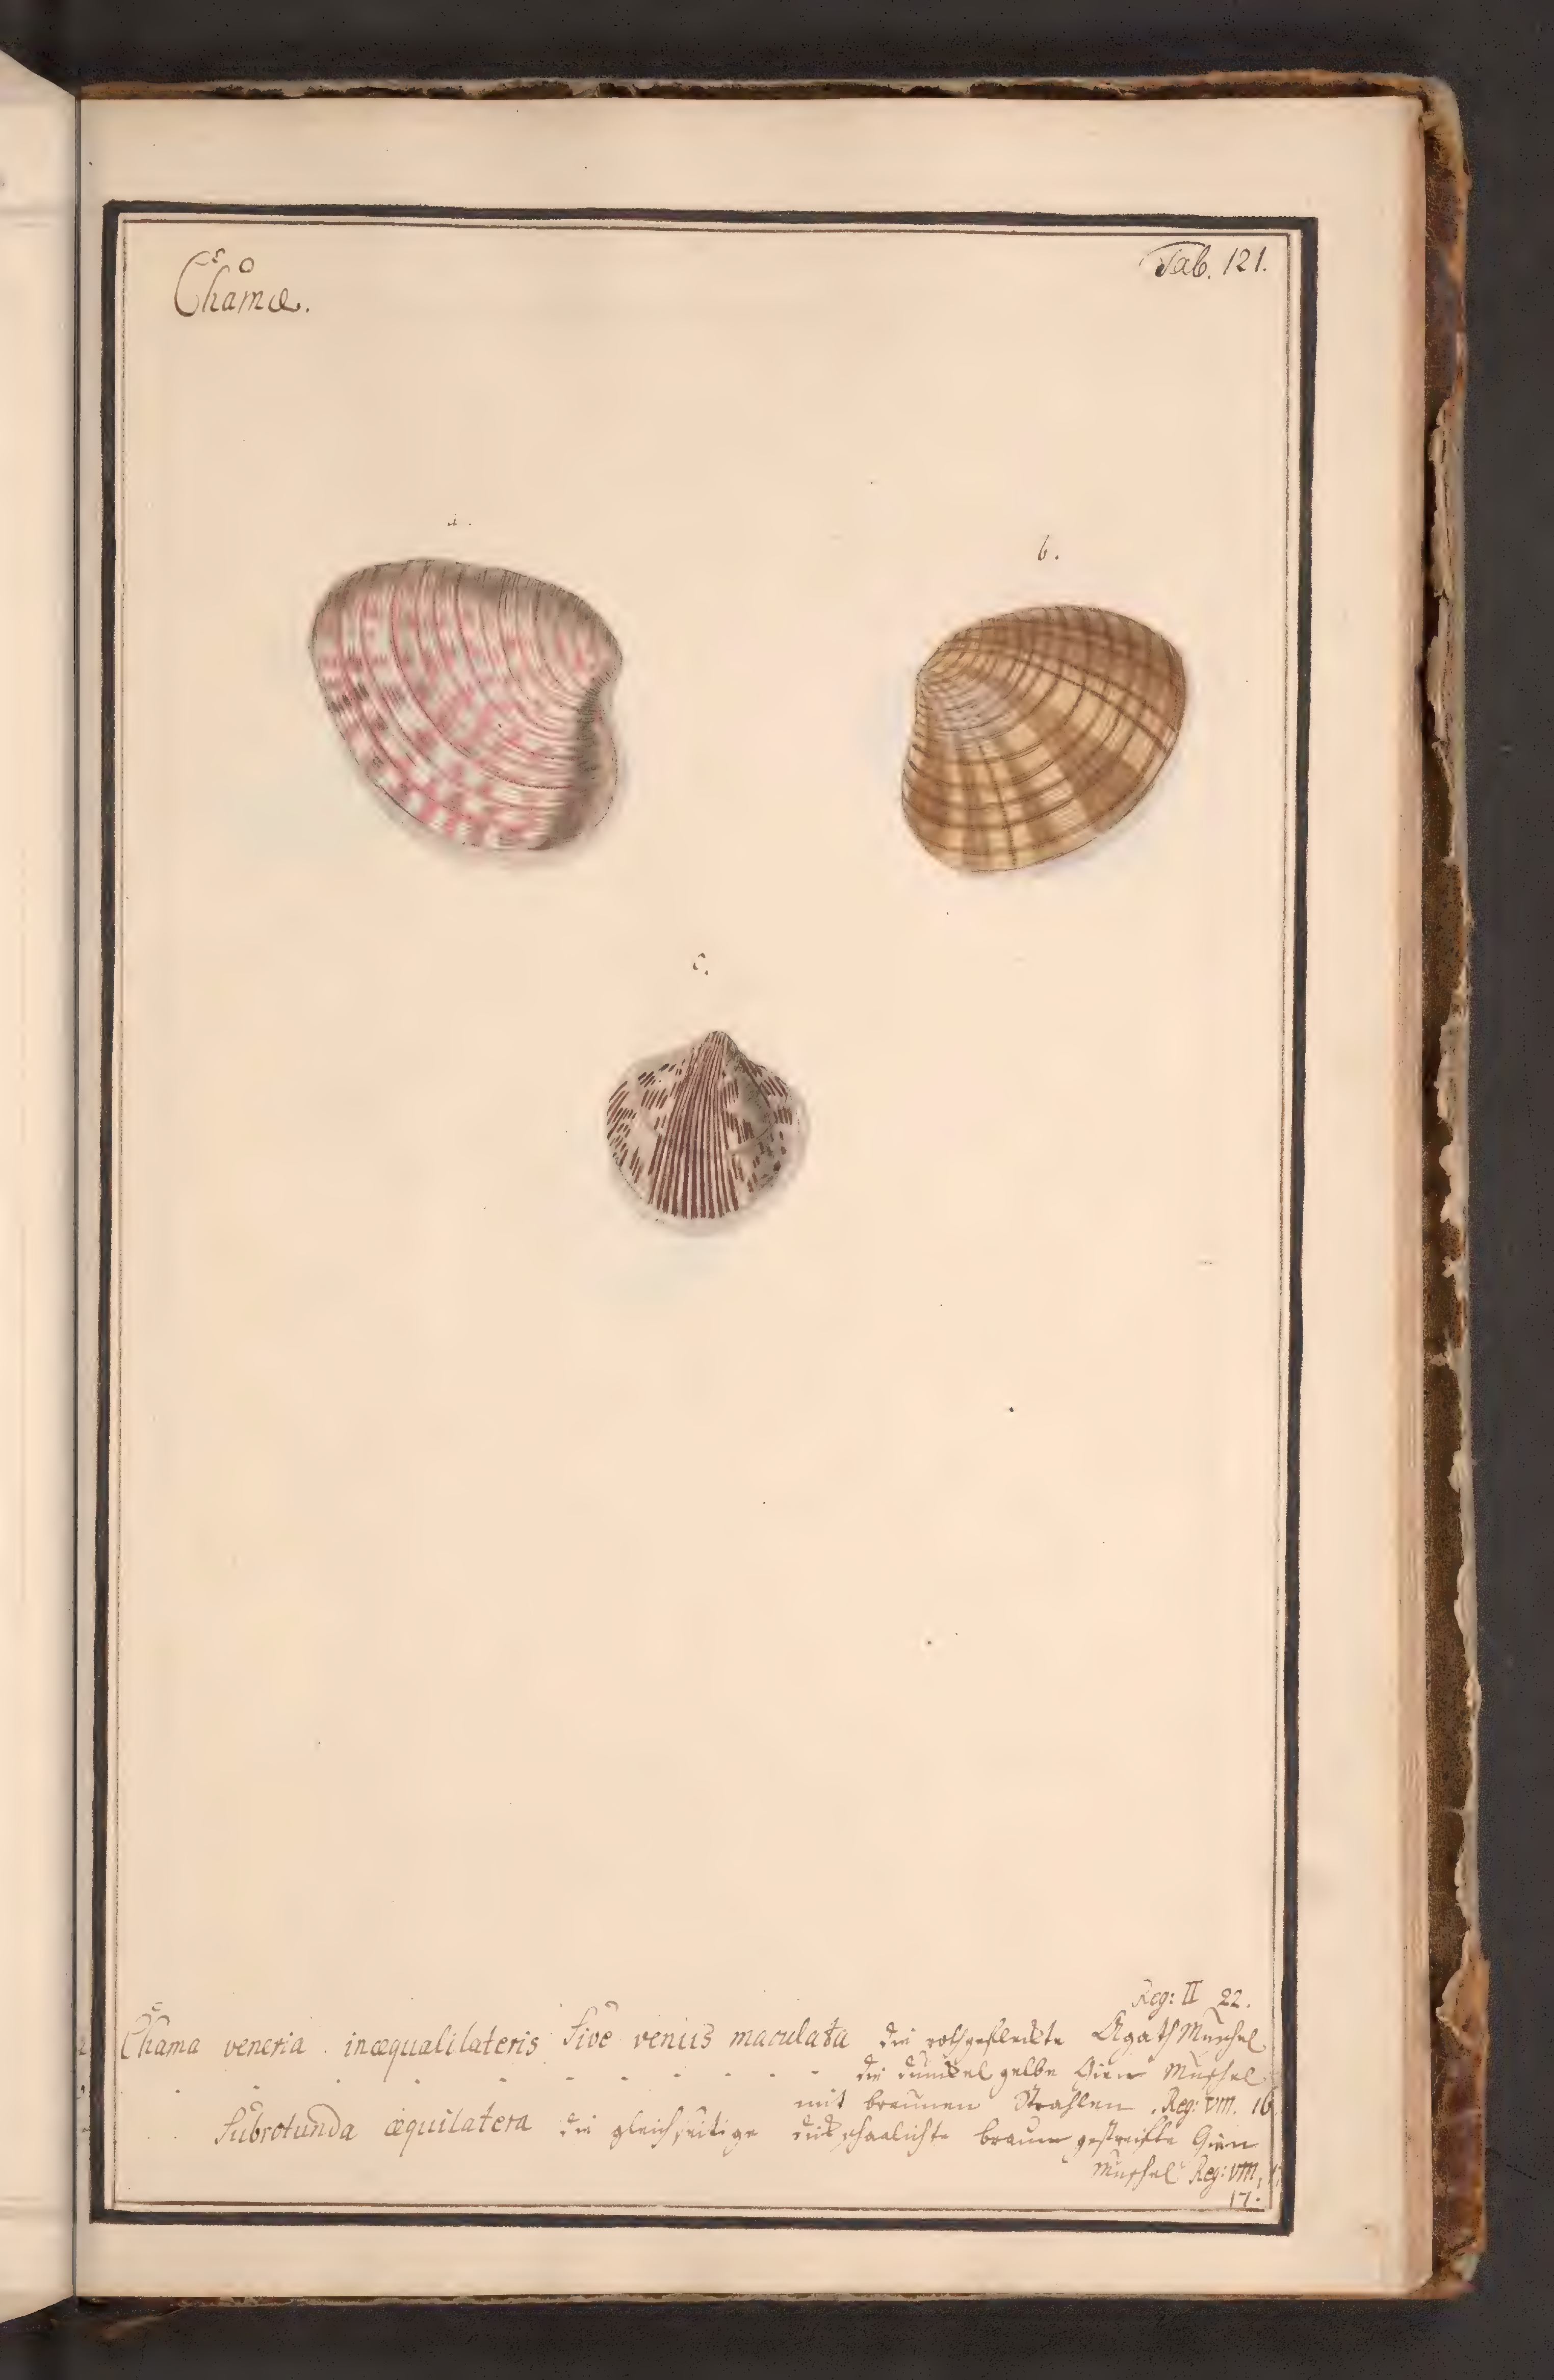 Chamæ.
Tab. 121.
a.
b.
c.
Reg: II 22.
Chama veneria inæqualilateris Sive venus maculata die rothgefleckte Agath Muschel
die dunckel gelbe Gien Muschel
mit braunen Strahlen. Reg: VIII. 16
Subrotunda æquilatera die gleichseitige dickschaalichte braun gestreifte Gien
Muschel Reg: VIII,
17.